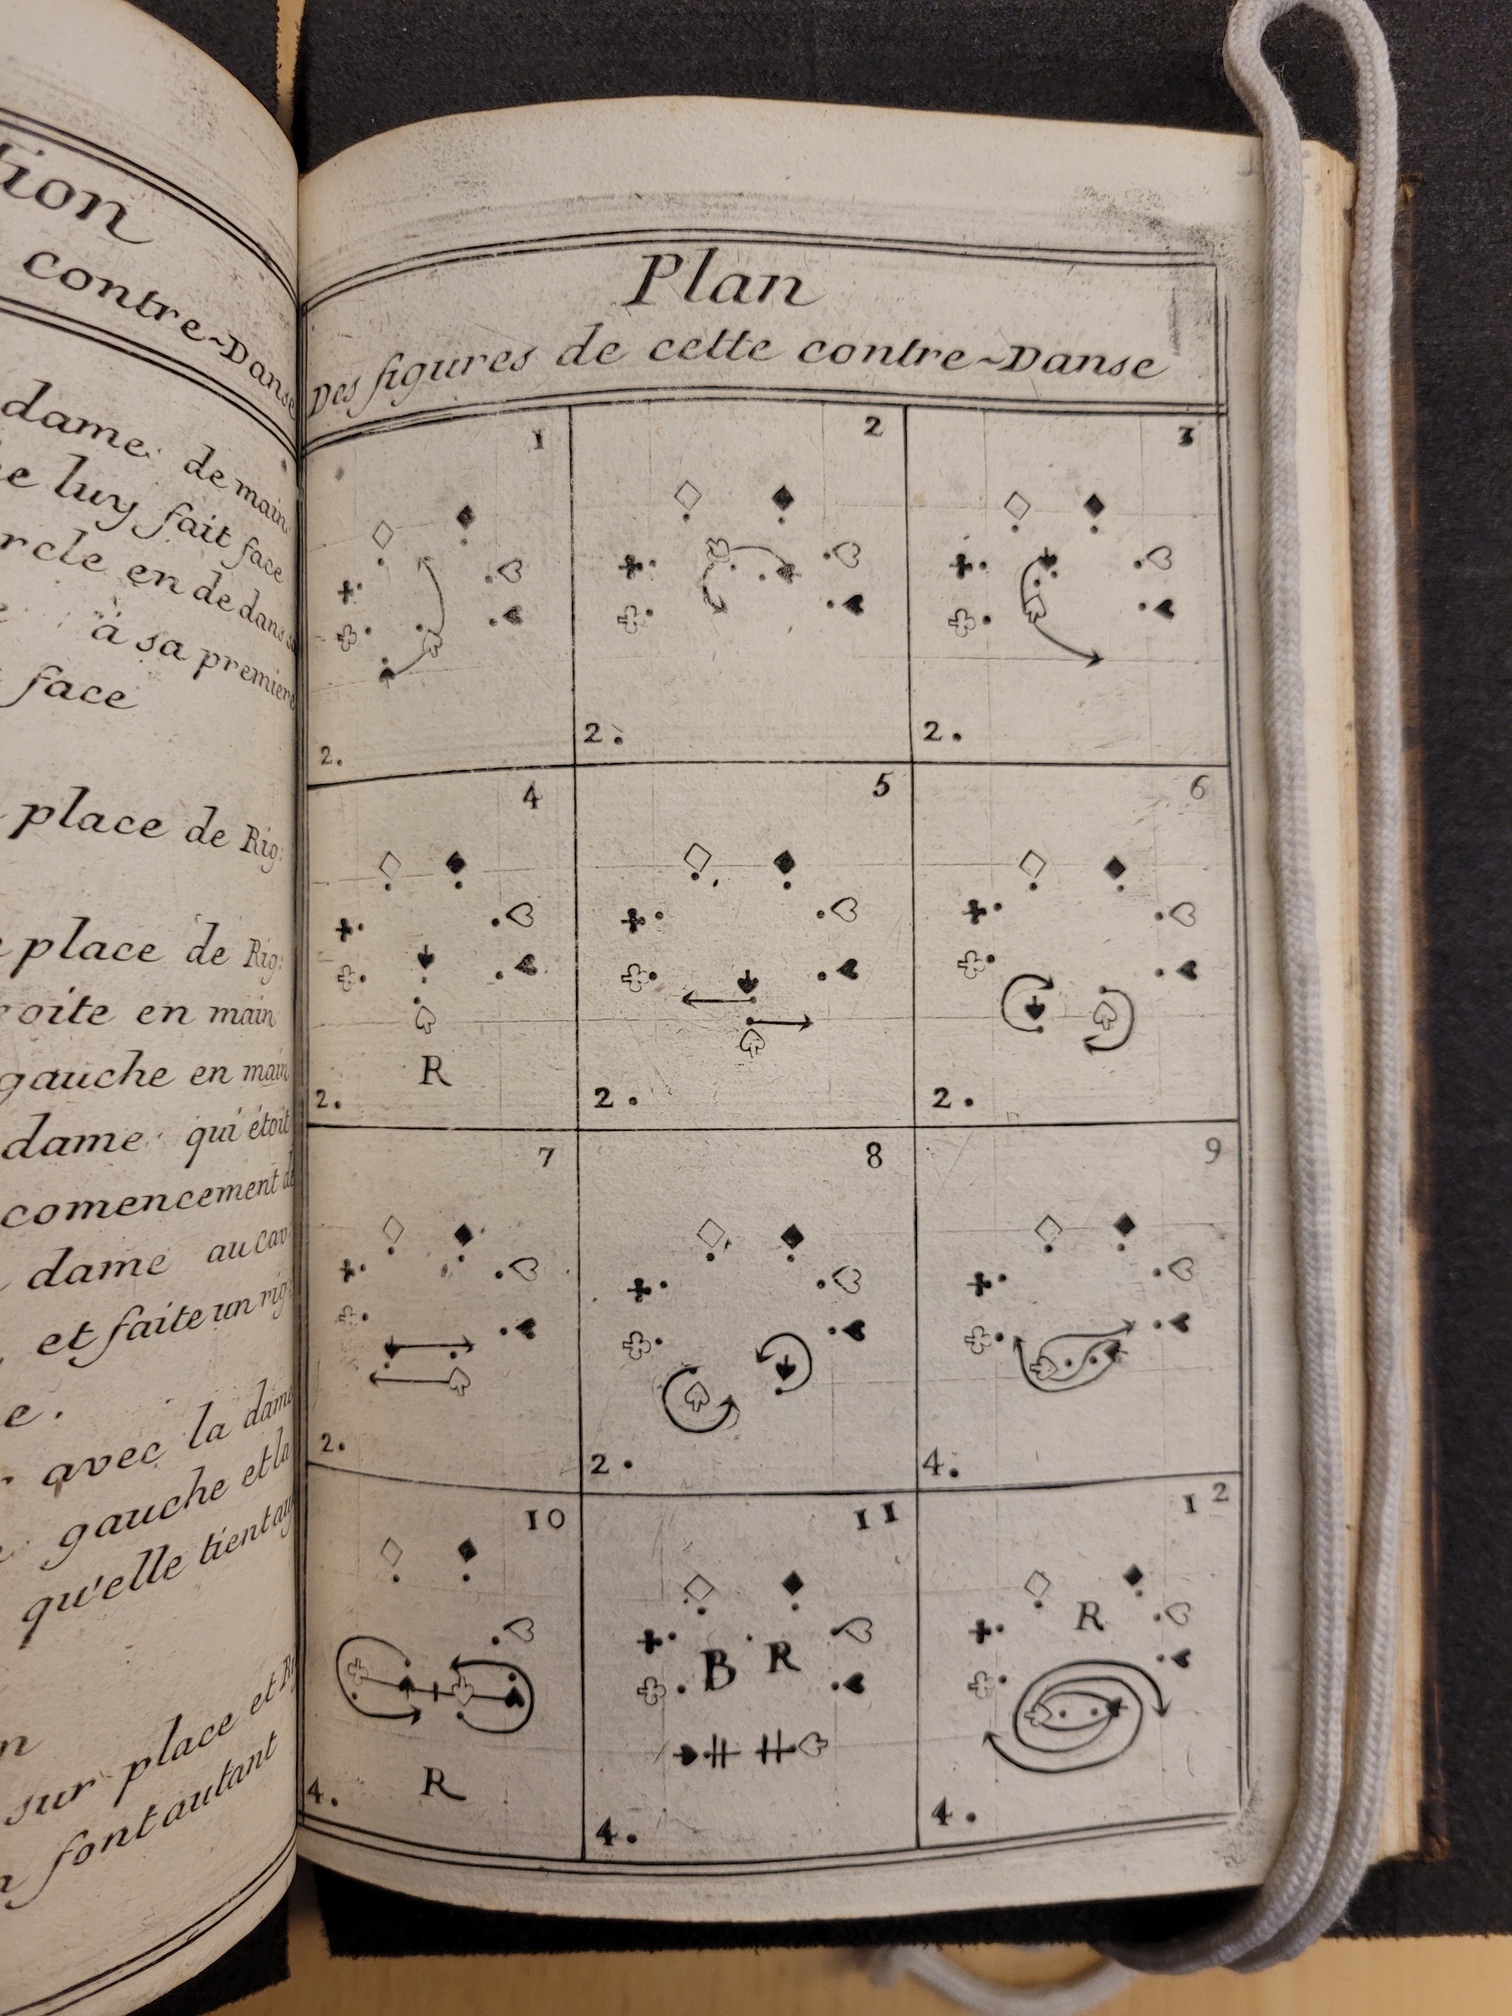 tion
contre~Danse
dame de main
e luy fait face
rcle en dedans
à sa premiere
face
place de Rig:
place de Rig:
roite en main
gauche en main
dame qui étoit
comencement de
dame au cav
et faite un rig
e.
avec la dame
gauche et la
qu'elle tient
n
sur place et
font autant
Plan
Des figures de cette contre~Danse
1
2.
2
2.
3
2.
4
R
2.
5
2.
6
2.
7
2.
8
2.
9
4.
10
R
4.
11
B R
4.
12
R
4.